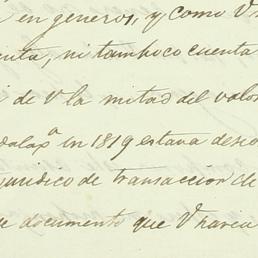 en generos, y como V
enta, ni tampoco cuenta
de V la mitad del valor
dalaxª in 1819 estava
juridico de transaccion de
documento que V haria